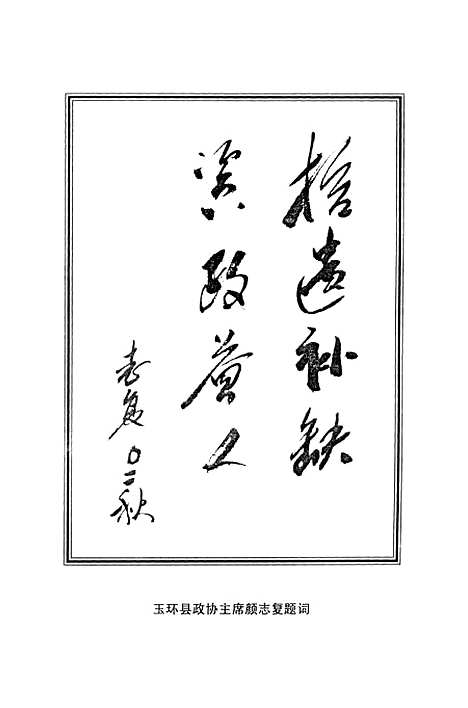 拾遗补缺
资政益人
志复
〇二秋
玉环县政协主席颜志复题词